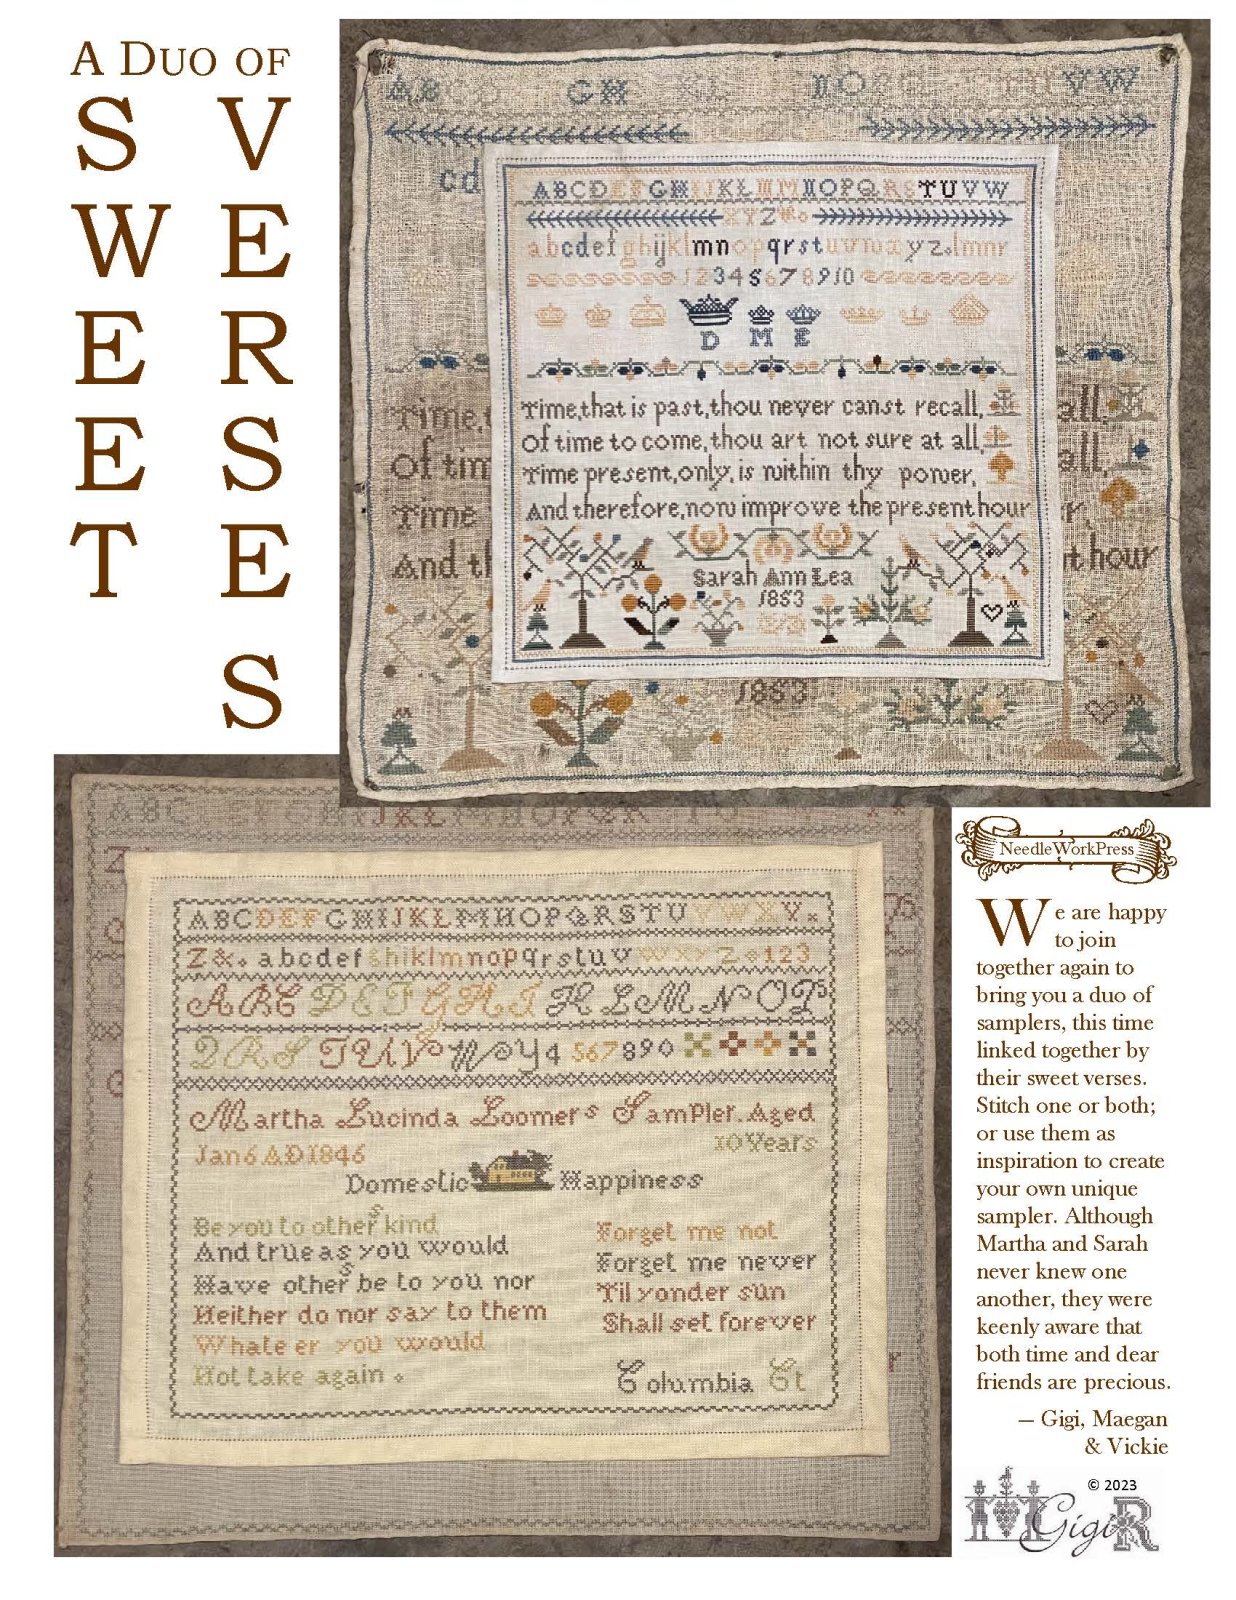 A DUO OF
SWEET
VERSES
AB GH
VW
cd
ABCDEFGHIJKLMNOPQRSTUVW
XYZ&
abcdefghijklmnopqrstuvwxyz.lmnr
12345678910
D M E
Time,that is past,thou never canst recall,
Of time to come,thou art not sure at all,
Time present,only,is within thy power,
And therefore,now improve the present hour
Sarah Ann Lea
1853
Time,t
all,
Of tim
all,
Time
r,
And th
t hour
1853
ABC
JKLMNOPQR
ABCDEFGHIJKLMNOPQRSTUVWXY
Z&. abcdefghiklmnopqrstuvwxyz 123
ABCDEFGHIKLMNOP
QRSTUVWY4 567890
Martha Lucinda Loomers Sampler. Aged
10 Years
Jan 6 AD 1846
Domestic Happiness
Be you to others kind
And true as you would
Have others be to you nor
Neither do nor say to them
Whate er you would
Not take again.
Forget me not
Forget me never
Til yonder sun
Shall set forever
Columbia Ct
NeedleWorkPress
We are happy
to join
together again to
bring you a duo of
samplers, this time
linked together by
their sweet verses.
Stitch one or both;
or use them as
inspiration to create
your own unique
sampler. Although
Martha and Sarah
never knew one
another, they were
keenly aware that
both time and dear
friends are precious.
— Gigi, Maegan
& Vickie
© 2023
GigiR